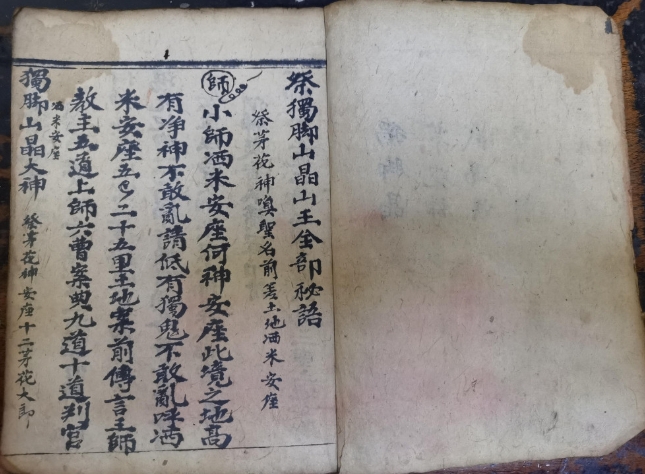 祭獨脚山晶山王全部秘語
祭茅花神喚聖名前差土地洒米安座
師
小師洒米安座何神安座此境之地高
有净神不敢亂請低有獨鬼不敢亂呼洒
米安座五二十五里土地案前傳言玉師
教主五道上師六曹案典九道十道判官
洒米安座
獨脚山晶大神 祭茅花神安座十二茅花大郎